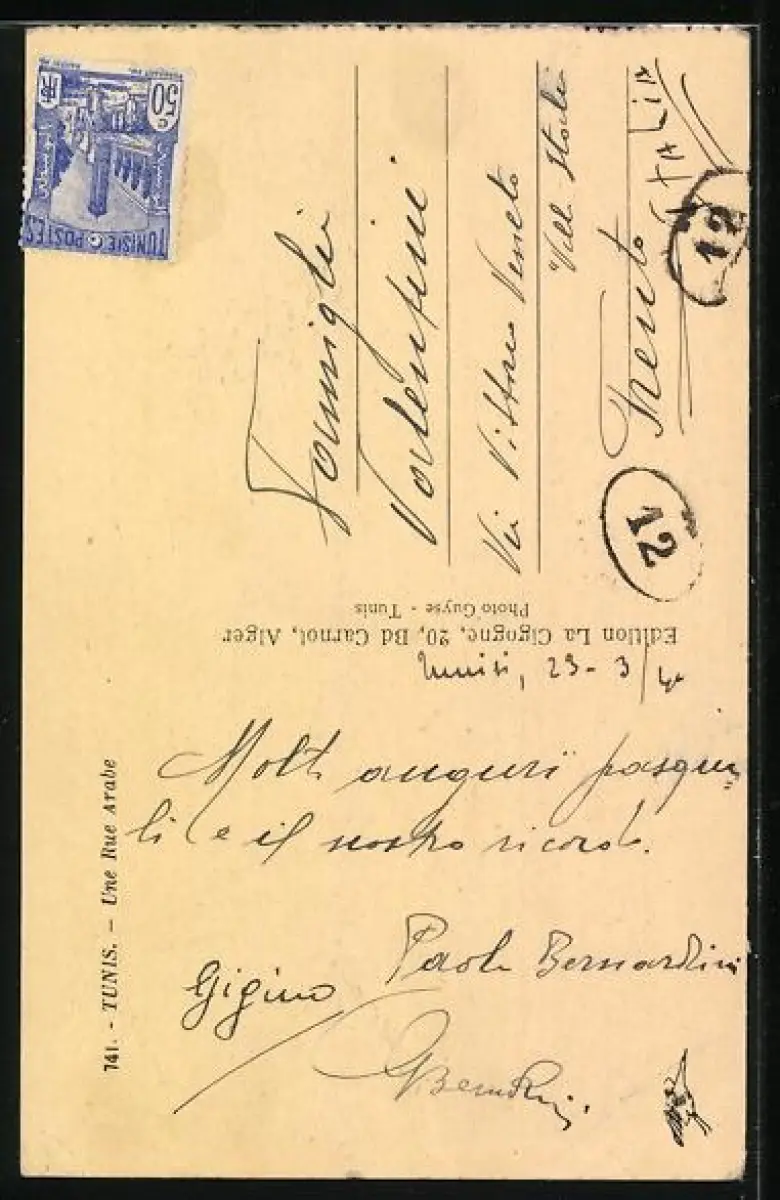 741. - TUNIS. - Une Rue Arabe
Tunisi, 29-3/40
Molti auguri pasqua=
li e il nostro ricordo.
Gigino
Paola Bernardini
Edition La Cigogne, 20, Bd Carnot, Alger
Photo Guyse - Tunis
50 c
RF
TUNISIE POSTES
Famiglia
Valentini
Via Vittorio Veneto
Trento
ITALIA
12
12